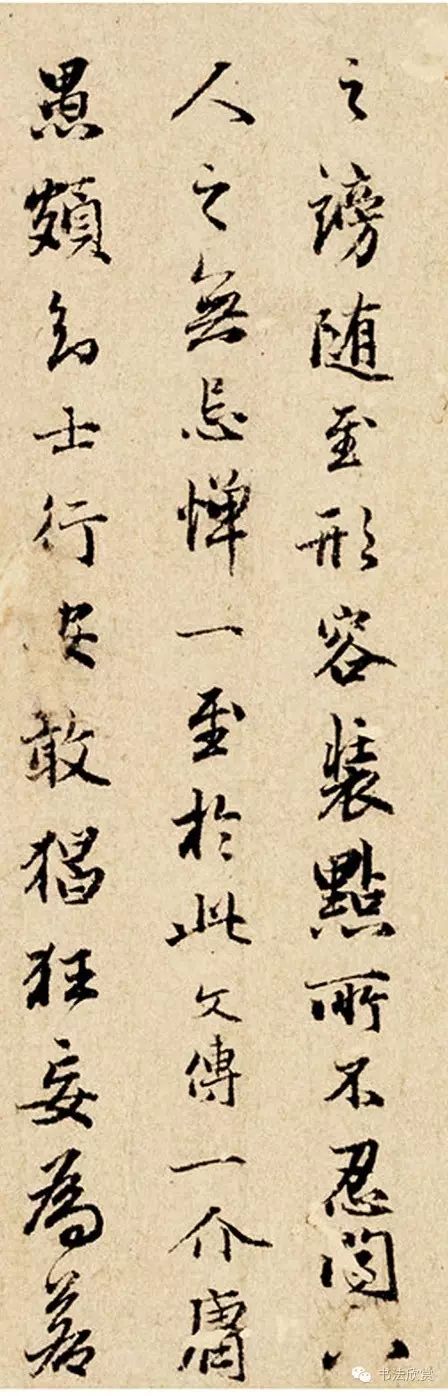 之謗随至形容裝點所不忍聞小
人之無忌憚一至於此文傳一介庸
愚頗知士行安敢猖狂妄為若
书法欣赏